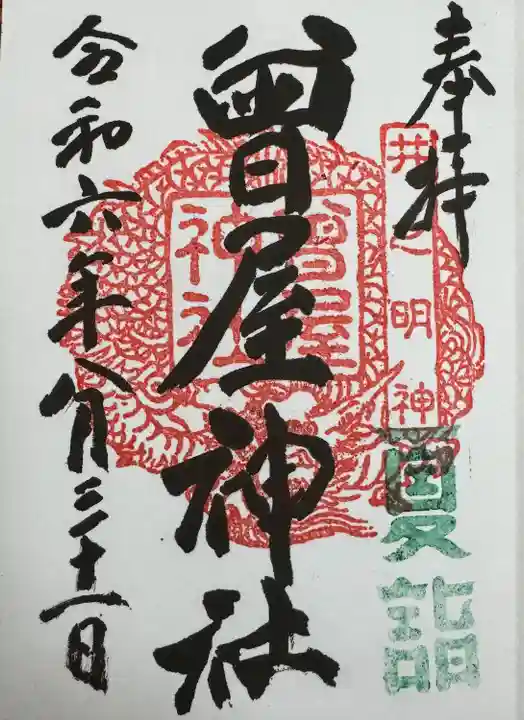 奉拝
井之明神
夏詣
曾屋神社
曽屋
神社
令和六年八月三十一日